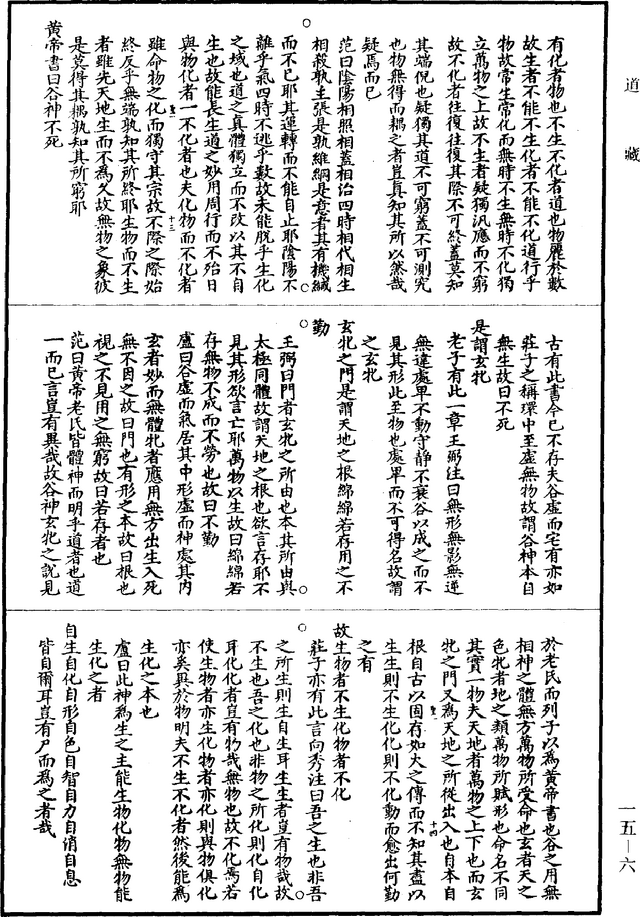 道藏
有化者物也不生不化者道也物麗於數
故生者不能不生化者不能不化道行乎
物故常生常化而無時不生無時不化獨
立萬物之上故不生者疑獨汎應而不窮
故不化者往復往復其際不可終蓋莫知
其端倪也疑獨其道不可窮蓋不可測究
也物無得而耦之者豈真知其所以然哉
疑焉而已
范曰陰陽相照相蓋相治四時相代相生
相殺孰主張是孰維綱是意者其有機緘
而不已耶其運轉而不能自止耶陰陽不
離乎氣四時不逃乎數故未能脫乎生化
之域也道之真體獨立而不改以其不自
生也故能長生道之妙用周行而不殆日
與物化者一不化者也夫化物而不化者
雖命物之化而獨守其宗故不際之際始
終反乎無端孰知其所終耶生物而不生
者雖先天地生而不為久故無物之象彼
是莫得其耦孰知其所窮耶
黃帝書曰谷神不死
十三
古有此書今已不存夫谷虛而宅有亦如
莊子之稱環中至虛無物故謂谷神本自
無生故曰不死
是謂玄牝
老子有此一章王弼注曰無形無影無逆
無違處卑不動守靜不衰谷以成之而不
見其形此至物也處卑而不可得名故謂
之玄牝
玄牝之門是謂天地之根綿綿若存用之不
勤
王弼曰門者玄牝之所由也本其所由與
太極同體故謂天地之根也欲言存耶不
見其形欲言亡耶萬物以生故曰綿綿若
存無物不成而不勞也故曰不勤
盧曰谷虛而氣居其中形虛而神處其內
玄者妙而無體牝者應用無方出生入死
無不因之故曰門也有形之本故曰根也
視之不見用之無窮故曰若存者也
范曰黃帝老氏皆體神而明乎道者也道
一而已言豈有異哉故谷神玄牝之說見
於老氏而列子以為黃帝書也谷之用無
相神之體無方萬物所受命也玄者天之
色牝者地之類萬物所賦形也命名不同
其實一物夫天地者萬物之上下也而玄
牝之門又為天地之所從出入也自本自
根自古以固存如火之傳而不知其盡以
生生則不生化化則不化動而愈出何勤
之有
十四
故生物者不生化物者不化
莊子亦有此言向秀注曰吾之生也非吾
之所生則生自生耳生生者豈有物哉故
不生也吾之化也非物之所化則化自化
耳化化者豈有物哉無物也故不化焉若
使生物者亦生化物者亦化則與物俱化
亦奚異於物明夫不生不化者然後能為
生化之本也
盧曰此神為生之主能生物化物無物能
生化之者
自生自化自形自色自智自力自消自息
皆自爾耳豈有尸而為之者哉
一五－六